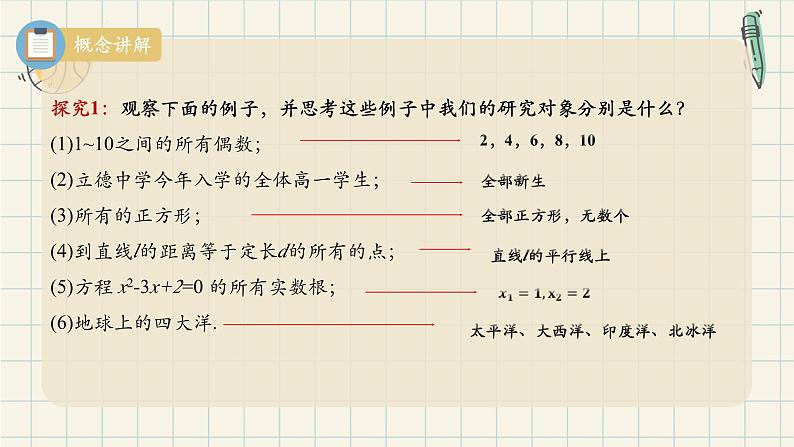 概念讲解
探究1：观察下面的例子，并思考这些例子中我们的研究对象分别是什么？
(1)1~10之间的所有偶数；
2，4，6，8，10
(2)立德中学今年入学的全体高一学生；
全部新生
(3)所有的正方形；
全部正方形，无数个
(4)到直线l的距离等于定长d的所有的点；
直线l的平行线上
(5)方程 x²-3x+2=0 的所有实数根；
x₁ = 1, x₂ = 2
(6)地球上的四大洋.
太平洋、大西洋、印度洋、北冰洋